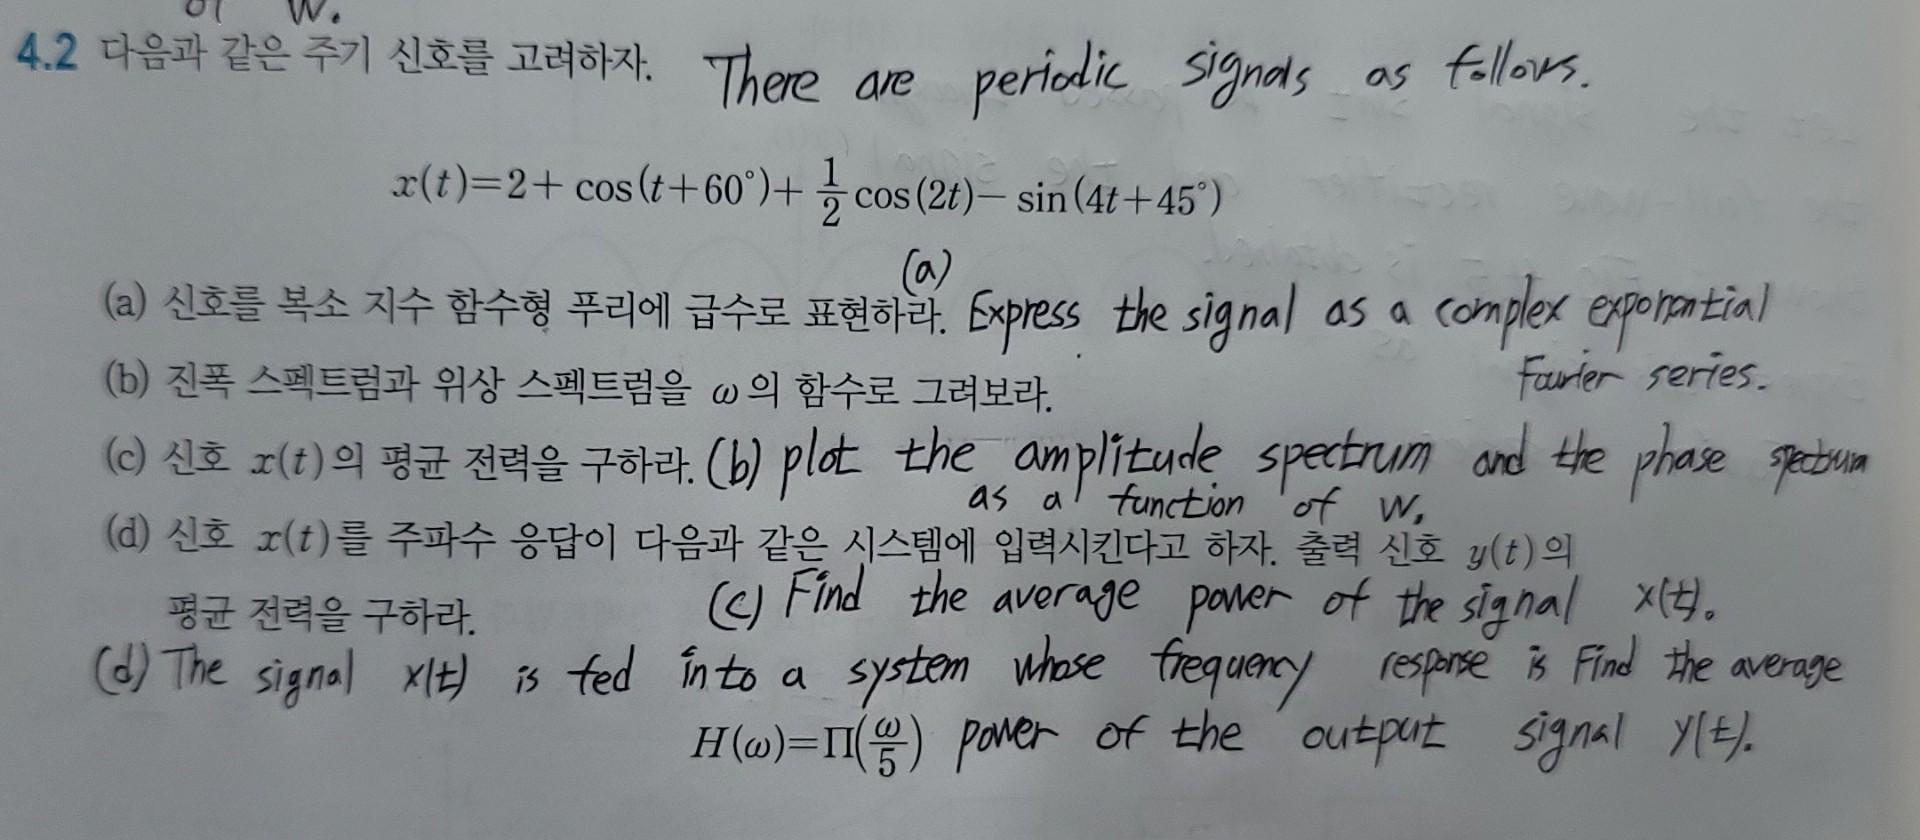 of W.
4.2 다음과 같은 주기 신호를 고려하자. There are periodic signals as follows.
x(t)=2+ cos(t+60°)+ 1/2 cos(2t)− sin(4t+45°)
(a)
(a) 신호를 복소 지수 함수형 푸리에 급수로 표현하라. Express the signal as a complex exponential
Fourier series.
(b) 진폭 스펙트럼과 위상 스펙트럼을 ω의 함수로 그려보라.
(c) 신호 x(t)의 평균 전력을 구하라. (b) plot the amplitude spectrum and the phase spectrum
as a function of W.
(d) 신호 x(t)를 주파수 응답이 다음과 같은 시스템에 입력시킨다고 하자. 출력 신호 y(t)의
평균 전력을 구하라. (c) Find the average power of the signal x(t).
(d) The signal x(t) is fed into a system whose frequency response is Find the average
H(ω)=Π(ω/5) power of the output signal y(t).